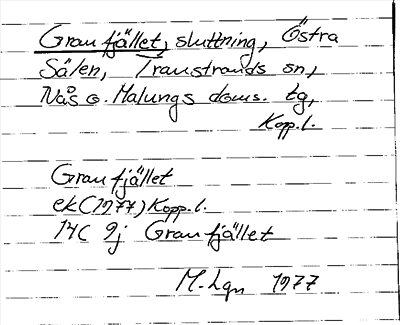 Granfjället, sluttning, Östra
Sälen, Transtrands sn,
Nås o. Malungs doms. tg,
Kopp.l.
Granfjället
ek (1977) Kopp.l.
14C 9j Granfjället
M. Lgn 1977